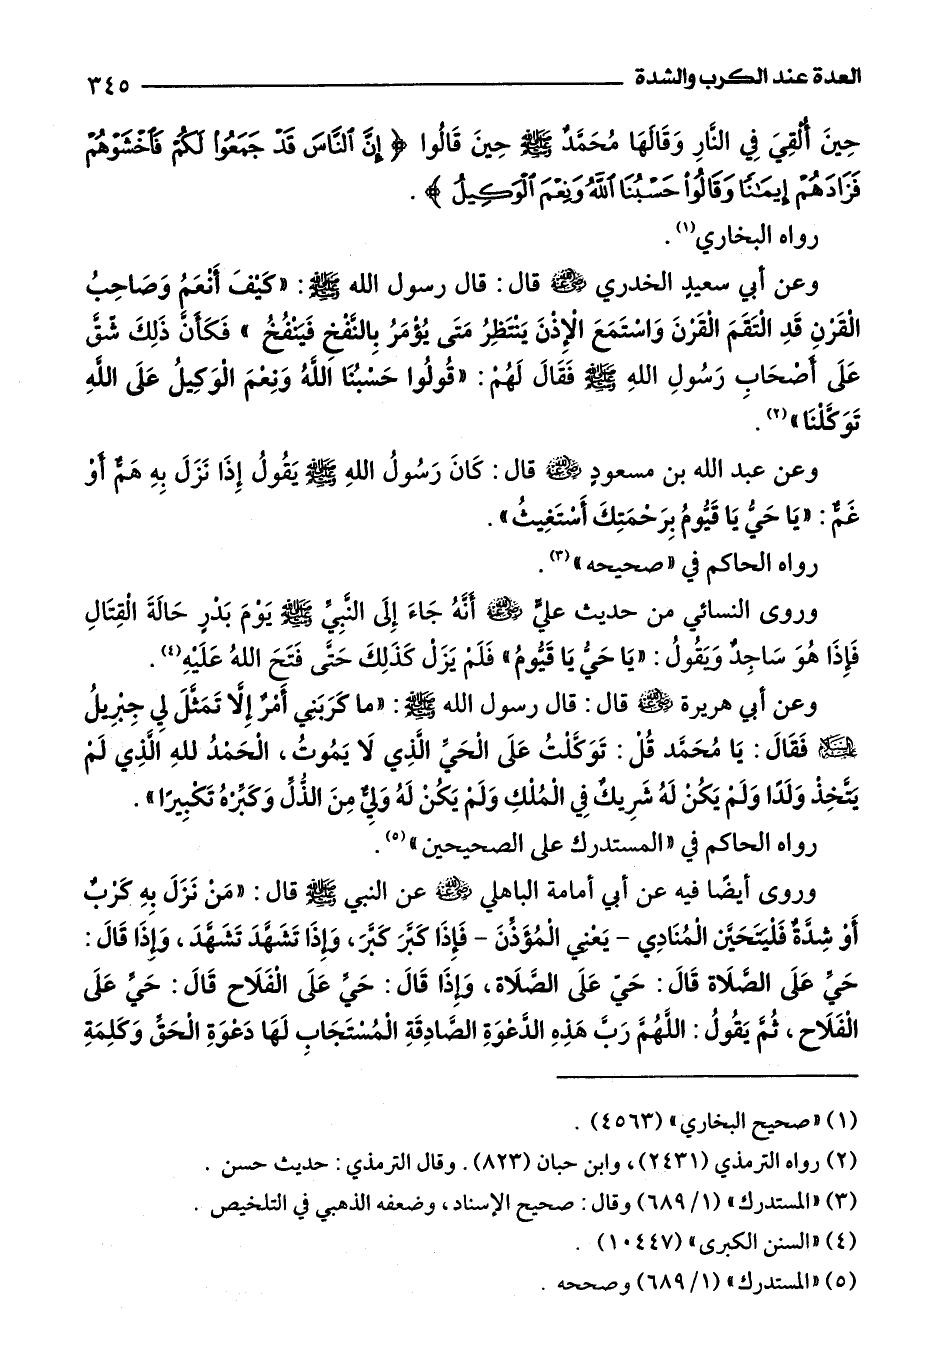 العدة عند الكرب والشدة ٣٤٥
حِينَ أُلْقِيَ فِي النَّارِ وَقَالَهَا مُحَمَّدٌ ﷺ حِينَ قَالُوا ﴿ إِنَّ ٱلنَّاسَ قَدْ جَمَعُوا۟ لَكُمْ فَٱخْشَوْهُمْ
فَزَادَهُمْ إِيمَـٰنًا وَقَالُوا۟ حَسْبُنَا ٱللَّهُ وَنِعْمَ ٱلْوَكِيلُ ﴾ .
رواه البخاري(١) .
وعن أبي سعيدٍ الخدري رضي الله عنه قال : قال رسول الله ﷺ : «كَيْفَ أَنْعَمُ وَصَاحِبُ
الْقَرْنِ قَدِ الْتَقَمَ الْقَرْنَ وَاسْتَمَعَ الإِذْنَ يَنْتَظِرُ مَتَى يُؤْمَرُ بِالنَّفْخِ فَيَنْفُخُ » فَكَأَنَّ ذَلِكَ شَقَّ
عَلَى أَصْحَابِ رَسُولِ اللهِ ﷺ فَقَالَ لَهُمْ : «قُولُوا حَسْبُنَا اللَّهُ وَنِعْمَ الْوَكِيلُ عَلَى اللَّهِ
تَوَكَّلْنَا»(٢) .
وعن عبد الله بن مسعودٍ رضي الله عنه قال : كَانَ رَسُولُ اللهِ ﷺ يَقُولُ إِذَا نَزَلَ بِهِ هَمٌّ أَوْ
غَمٌّ : «يَا حَيُّ يَا قَيُّومُ بِرَحْمَتِكَ أَسْتَغِيثُ» .
رواه الحاكم في «صحيحه»(٣) .
وروى النسائي من حديث عليٍّ رضي الله عنه أَنَّهُ جَاءَ إِلَى النَّبِيِّ ﷺ يَوْمَ بَدْرٍ حَالَةَ الْقِتَالِ
فَإِذَا هُوَ سَاجِدٌ وَيَقُولُ : «يَا حَيُّ يَا قَيُّومُ» فَلَمْ يَزَلْ كَذَلِكَ حَتَّى فَتَحَ اللهُ عَلَيْهِ(٤) .
وعن أبي هريرة رضي الله عنه قال : قال رسول الله ﷺ : «ما كَرَبَنِي أَمْرٌ إِلَّا تَمَثَّلَ لِي جِبْرِيلُ
عليه السلام فَقَالَ : يَا مُحَمَّد قُلْ : تَوَكَّلْتُ عَلَى الْحَيِّ الَّذِي لَا يَمُوتُ ، الْحَمْدُ للهِ الَّذِي لَمْ
يَتَّخِذْ وَلَدًا وَلَمْ يَكُنْ لَهُ شَرِيكٌ فِي الْمُلْكِ وَلَمْ يَكُنْ لَهُ وَلِيٌّ مِنَ الذُّلِّ وَكَبِّرْهُ تَكْبِيرًا» .
رواه الحاكم في «المستدرك على الصحيحين»(٥) .
وروى أيضًا فيه عن أبي أمامة الباهلي رضي الله عنه عن النبي ﷺ قال : «مَنْ نَزَلَ بِهِ كَرْبٌ
أَوْ شِدَّةٌ فَلْيَتَحَيَّنِ الْمُنَادِي - يَعْنِي الْمُؤَذِّنَ - فَإِذَا كَبَّرَ كَبَّرَ، وَإِذَا تَشَهَّدَ تَشَهَّدَ ، وَإِذَا قَالَ :
حَيَّ عَلَى الصَّلَاة قَالَ : حَيّ عَلَى الصَّلَاة، وَإِذَا قَالَ : حَيَّ عَلَى الْفَلَاح قَالَ : حَيَّ عَلَى
الْفَلَاح ، ثُمَّ يَقُولُ : اللَّهُمَّ رَبَّ هَذِهِ الدَّعْوَةِ الصَّادِقَةِ الْمُسْتَجَابِ لَهَا دَعْوَةِ الْحَقِّ وَكَلِمَةِ
(١) «صحيح البخاري» (٤٥٦٣) .
(٢) رواه الترمذي (٢٤٣١)، وابن حبان (٨٢٣) . وقال الترمذي : حديث حسن .
(٣) «المستدرك» (١/ ٦٨٩) وقال : صحيح الإسناد ، وضعفه الذهبي في التلخيص .
(٤) «السنن الكبرى» (١٠٤٤٧) .
(٥) «المستدرك» (١/ ٦٨٩) وصححه .